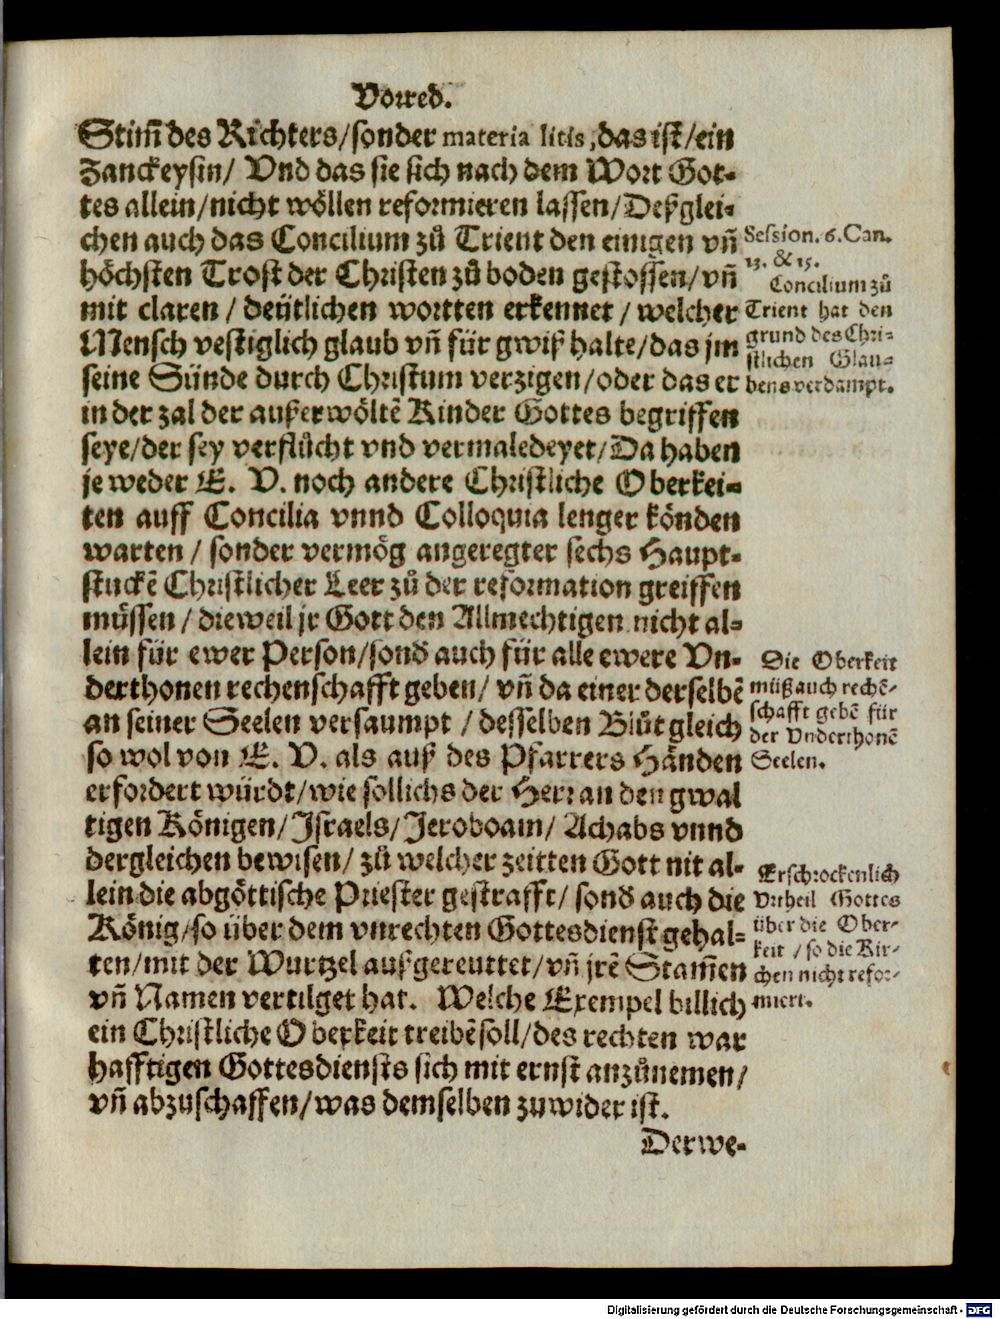 Vorred.
Stim̃ des Richters/sonder materia litis, das ist/ein
Zanckeysin/ Vnd das sie sich nach dem Wort Got-
tes allein/nicht wöllen reformieren lassen/Deßglei-
chen auch das Concilium zů Trient den einigen vñ
höchsten Trost der Christen zů boden gestossen/vñ
mit claren / deütlichen wortten erkennet / welcher
Mensch vestiglich glaub vñ für gwiß halte/das jm
seine Sünde durch Christum verzigen/oder das er
in der zal der außerwöltẽ Kinder Gottes begriffen
seye/der sey verflůcht vnd vermaledeyet/Da haben
je weder E. V. noch andere Christliche Oberkei-
ten auff Concilia vnnd Colloquia lenger könden
warten / sonder vermög angeregter sechs Haupt-
stuckẽ Christlicher Leer zů der reformation greiffen
müssen / dieweil jr Gott den Allmechtigen nicht al-
lein für ewer Person/sond̃ auch für alle ewere Vn-
derthonen rechenschafft geben/ vñ da einer derselbẽ
an seiner Seelen versaumpt / desselben Blůt gleich
so wol von E. V. als auß des Pfarrers Händen
erfordert würdt/wie sollichs der Herr an den gwal
tigen Königen/Israels/Jeroboam/ Achabs vnnd
dergleichen bewisen/ zů welcher zeitten Gott nit al-
lein die abgöttische Priester gestrafft/ sond̃ auch die
König/so über dem vnrechten Gottesdienst gehal-
ten/mit der Wurtzel außgereuttet/vñ jrẽ Stam̃en
vñ Namen vertilget hat. Welche Exempel billich
ein Christliche Oberkeit treibẽ soll/des rechten war
hafftigen Gottesdiensts sich mit ernst anzůnemen/
vñ abzuschaffen/was demselben zuwider ist.
Derwe-
Session. 6. Can.
13. & 15.
Concilium zů
Trient hat den
grund des Chri-
stlichen Glau-
bens verdampt.
Die Oberkeit
můß auch rechẽ-
schafft gebẽ für
der Vnderthonẽ
Seelen.
Erschrockenlich
Vrtheil Gottes
über die Ober-
keit / so die Kir-
chen nicht refor-
miert.
Digitalisierung gefördert durch die Deutsche Forschungsgemeinschaft - DFG